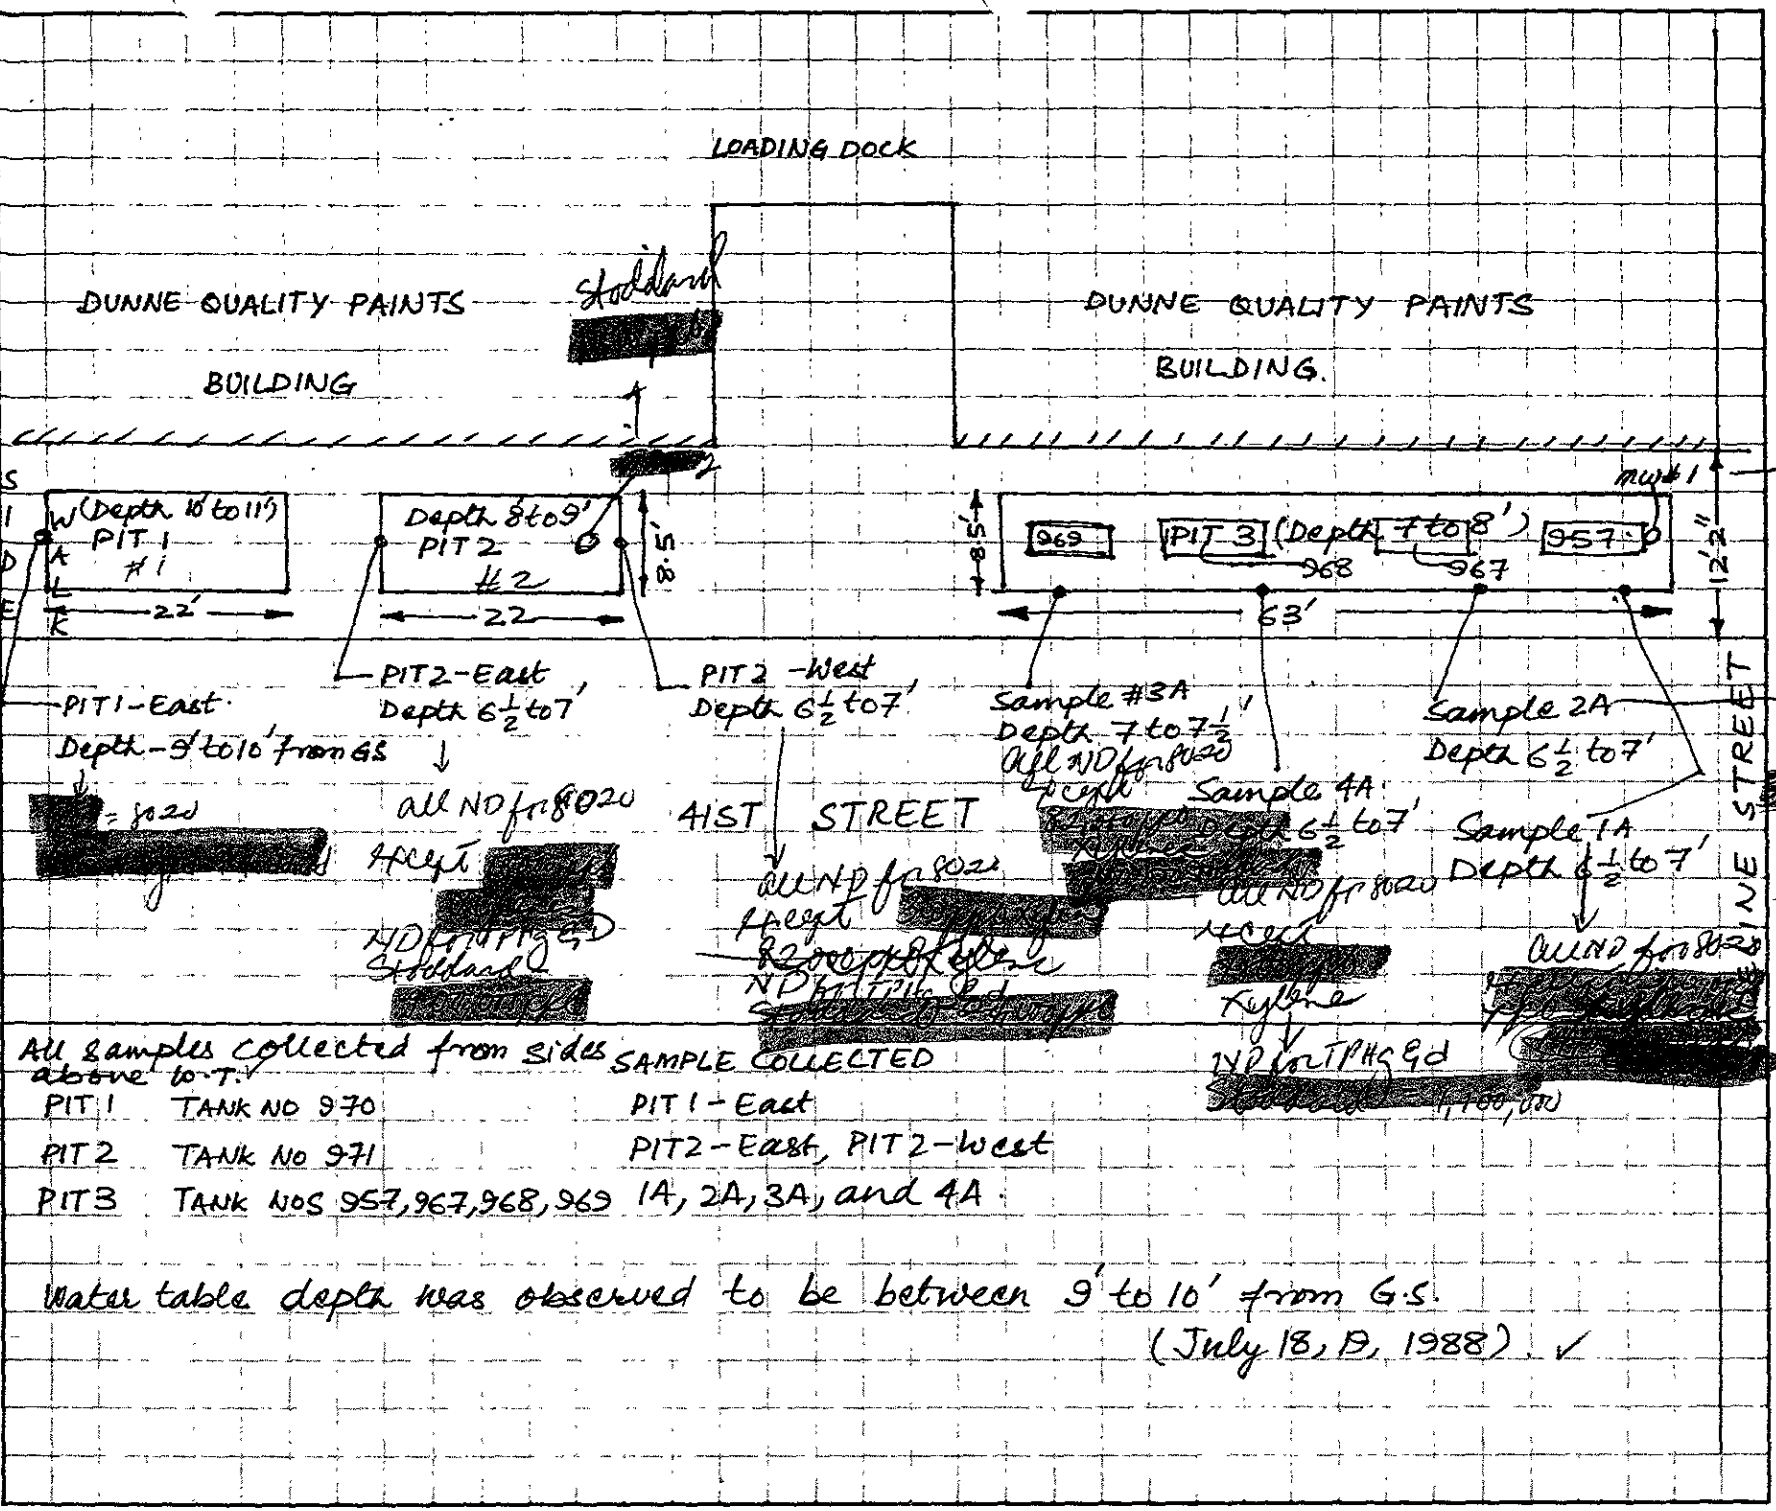 LOADING DOCK
Stoddard
DUNNE QUALITY PAINTS
BUILDING
DUNNE QUALITY PAINTS
BUILDING.
SIDE
WALK
(Depth 10' to 11')
PIT 1
#1
22'
Depth 8' to 9'
PIT 2
#2
22
8.5'
2
8.5'
969
PIT 3 (Depth 7 to 8')
957
968
967
63'
MW#1
12'2"
PIT1-East.
Depth-9' to 10' from GS
= 8020
PIT2-East
Depth 6 1/2 to 7'
all ND for 8020
except
ND for TPHg & D
Stoddard
PIT 2 -West
Depth 6 1/2 to 7'
all ND for 8020
except
ND for TPHg & d
Sample #3A
Depth 7 to 7 1/2'
all ND for 8020
except
Sample 4A
Depth 6 1/2 to 7'
all ND for 8020
except
Xylene
ND for TPHg & d
1,100,000
Sample 2A
Depth 6 1/2 to 7'
Sample 1A
Depth 6 1/2 to 7'
all ND for 8020
41ST STREET
STREET
All samples collected from sides
above W.T.
SAMPLE COLLECTED
PIT 1 TANK NO 970 PIT 1-East
PIT 2 TANK NO 971 PIT2-East, PIT 2-West
PIT3 TANK NOS 957,967,968,969 1A, 2A, 3A, and 4A.
Water table depth was observed to be between 9' to 10' from G.S.
(July 18, 19, 1988). ✓